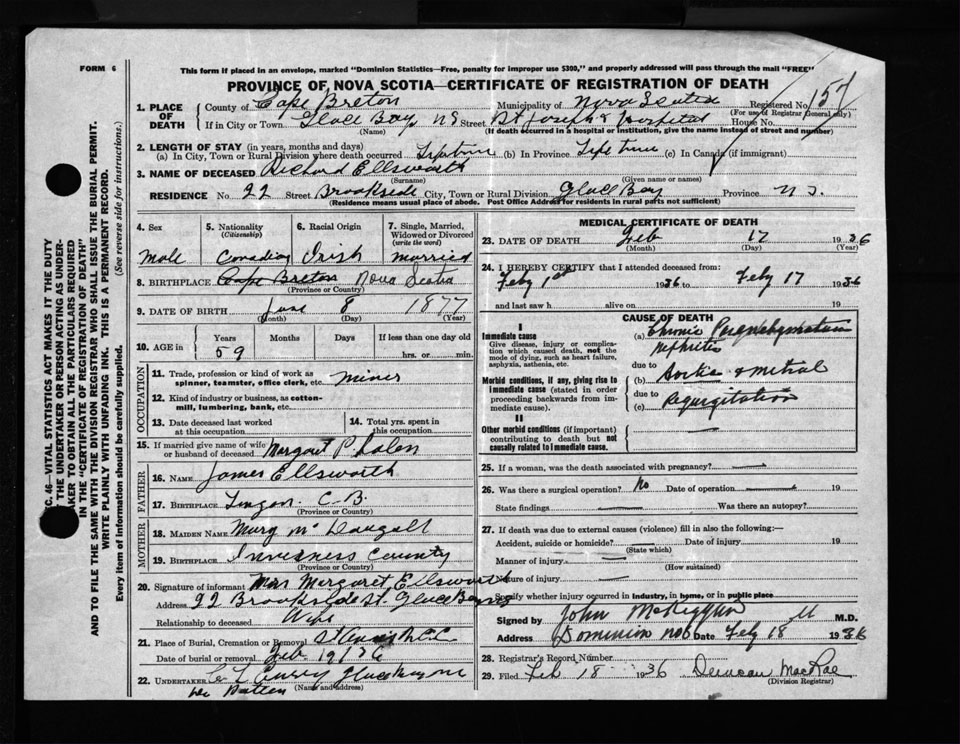 FORM 6
This form if placed in an envelope, marked "Dominion Statistics—Free, penalty for improper use $300," and properly addressed will pass through the mail "FREE"
PROVINCE OF NOVA SCOTIA—CERTIFICATE OF REGISTRATION OF DEATH
1. PLACE OF DEATH
County of Cape Breton Municipality of Nova Scotia Registered No. 157
(For use of Registrar General only)
If in City or Town Glace Bay NS Street St Joseph's Hospital House No.
(Name) (If death occurred in a hospital or institution, give the name instead of street and number)
2. LENGTH OF STAY (in years, months and days)
(a) In City, Town or Rural Division where death occurred Lifetime (b) In Province Life time (c) In Canada (if immigrant)
3. NAME OF DECEASED Richard Ellsworth
(Surname) (Given name or names)
RESIDENCE No. 22 Street Brookside City, Town or Rural Division Glace Bay Province N S.
(Residence means usual place of abode. Post Office Address for residents in rural parts not sufficient)
4. Sex
Male
5. Nationality
(Citizenship)
Canadian
6. Racial Origin
Irish
7. Single, Married, Widowed or Divorced
(write the word)
married
8. BIRTHPLACE Cape Breton Nova Scotia
(Province or Country)
9. DATE OF BIRTH June 8 1877
(Month) (Day) (Year)
10. AGE in
Years Months Days If less than one day old
59 hrs. or min.
OCCUPATION
11. Trade, profession or kind of work as
spinner, teamster, office clerk, etc. Miner
12. Kind of industry or business, as cotton-
mill, lumbering, bank, etc.
13. Date deceased last worked
at this occupation
14. Total yrs. spent in
this occupation
15. If married give name of wife
or husband of deceased Margaret Phalen
FATHER
16. NAME James Ellsworth
17. BIRTHPLACE Lingan C-B.
(Province or Country)
MOTHER
18. MAIDEN NAME Mary Mc Dougall
19. BIRTHPLACE Inverness County
(Province or Country)
20. Signature of informant Mrs Margaret Ellsworth
Address 22 Brookside St Glace Bay NS
Relationship to deceased Wife
21. Place of Burial, Cremation or Removal
Date of burial or removal Feb. 19/36
22. UNDERTAKER
(Name and address)
MEDICAL CERTIFICATE OF DEATH
23. DATE OF DEATH Feb 17 1936
(Month) (Day) (Year)
24. I HEREBY CERTIFY that I attended deceased from:
Feby 1st 1936 to Feby 17 1936
and last saw h alive on 19
CAUSE OF DEATH
I
Immediate cause
Give disease, injury or complica-
tion which caused death, not the
mode of dying, such as heart failure,
asphyxia, asthenia, etc.
(a) Chronic Parenchymatous
nephritis
due to
Morbid conditions, if any, giving rise to
immediate cause (stated in order
proceeding backwards from im-
mediate cause).
(b) Aortic & mitral
due to
(c) regurgitation
II
Other morbid conditions (if important)
contributing to death but not
causally related to immediate cause.
25. If a woman, was the death associated with pregnancy?
26. Was there a surgical operation? No Date of operation 19
State findings Was there an autopsy?
27. If death was due to external causes (violence) fill in also the following:—
Accident, suicide or homicide? Date of injury 19
(State which)
Manner of injury
(How sustained)
Nature of injury
Specify whether injury occurred in industry, in home, or in public place
Signed by John M.D.
Address Dominion No 6 Date Feby 18 1936
28. Registrar's Record Number
29. Filed Feb 18 1936 Duncan MacRae
(Division Registrar)
C. 46—VITAL STATISTICS ACT MAKES IT THE DUTY
THE UNDERTAKER OR PERSON ACTING AS UNDER-
AKER TO OBTAIN ALL THE PARTICULARS REQUIRED
IN THE "CERTIFICATE OF REGISTRATION OF DEATH"
AND TO FILE THE SAME WITH THE DIVISION REGISTRAR WHO SHALL ISSUE THE BURIAL PERMIT.
WRITE PLAINLY WITH UNFADING INK. THIS IS A PERMANENT RECORD.
Every item of information should be carefully supplied. (See reverse side for instructions.)